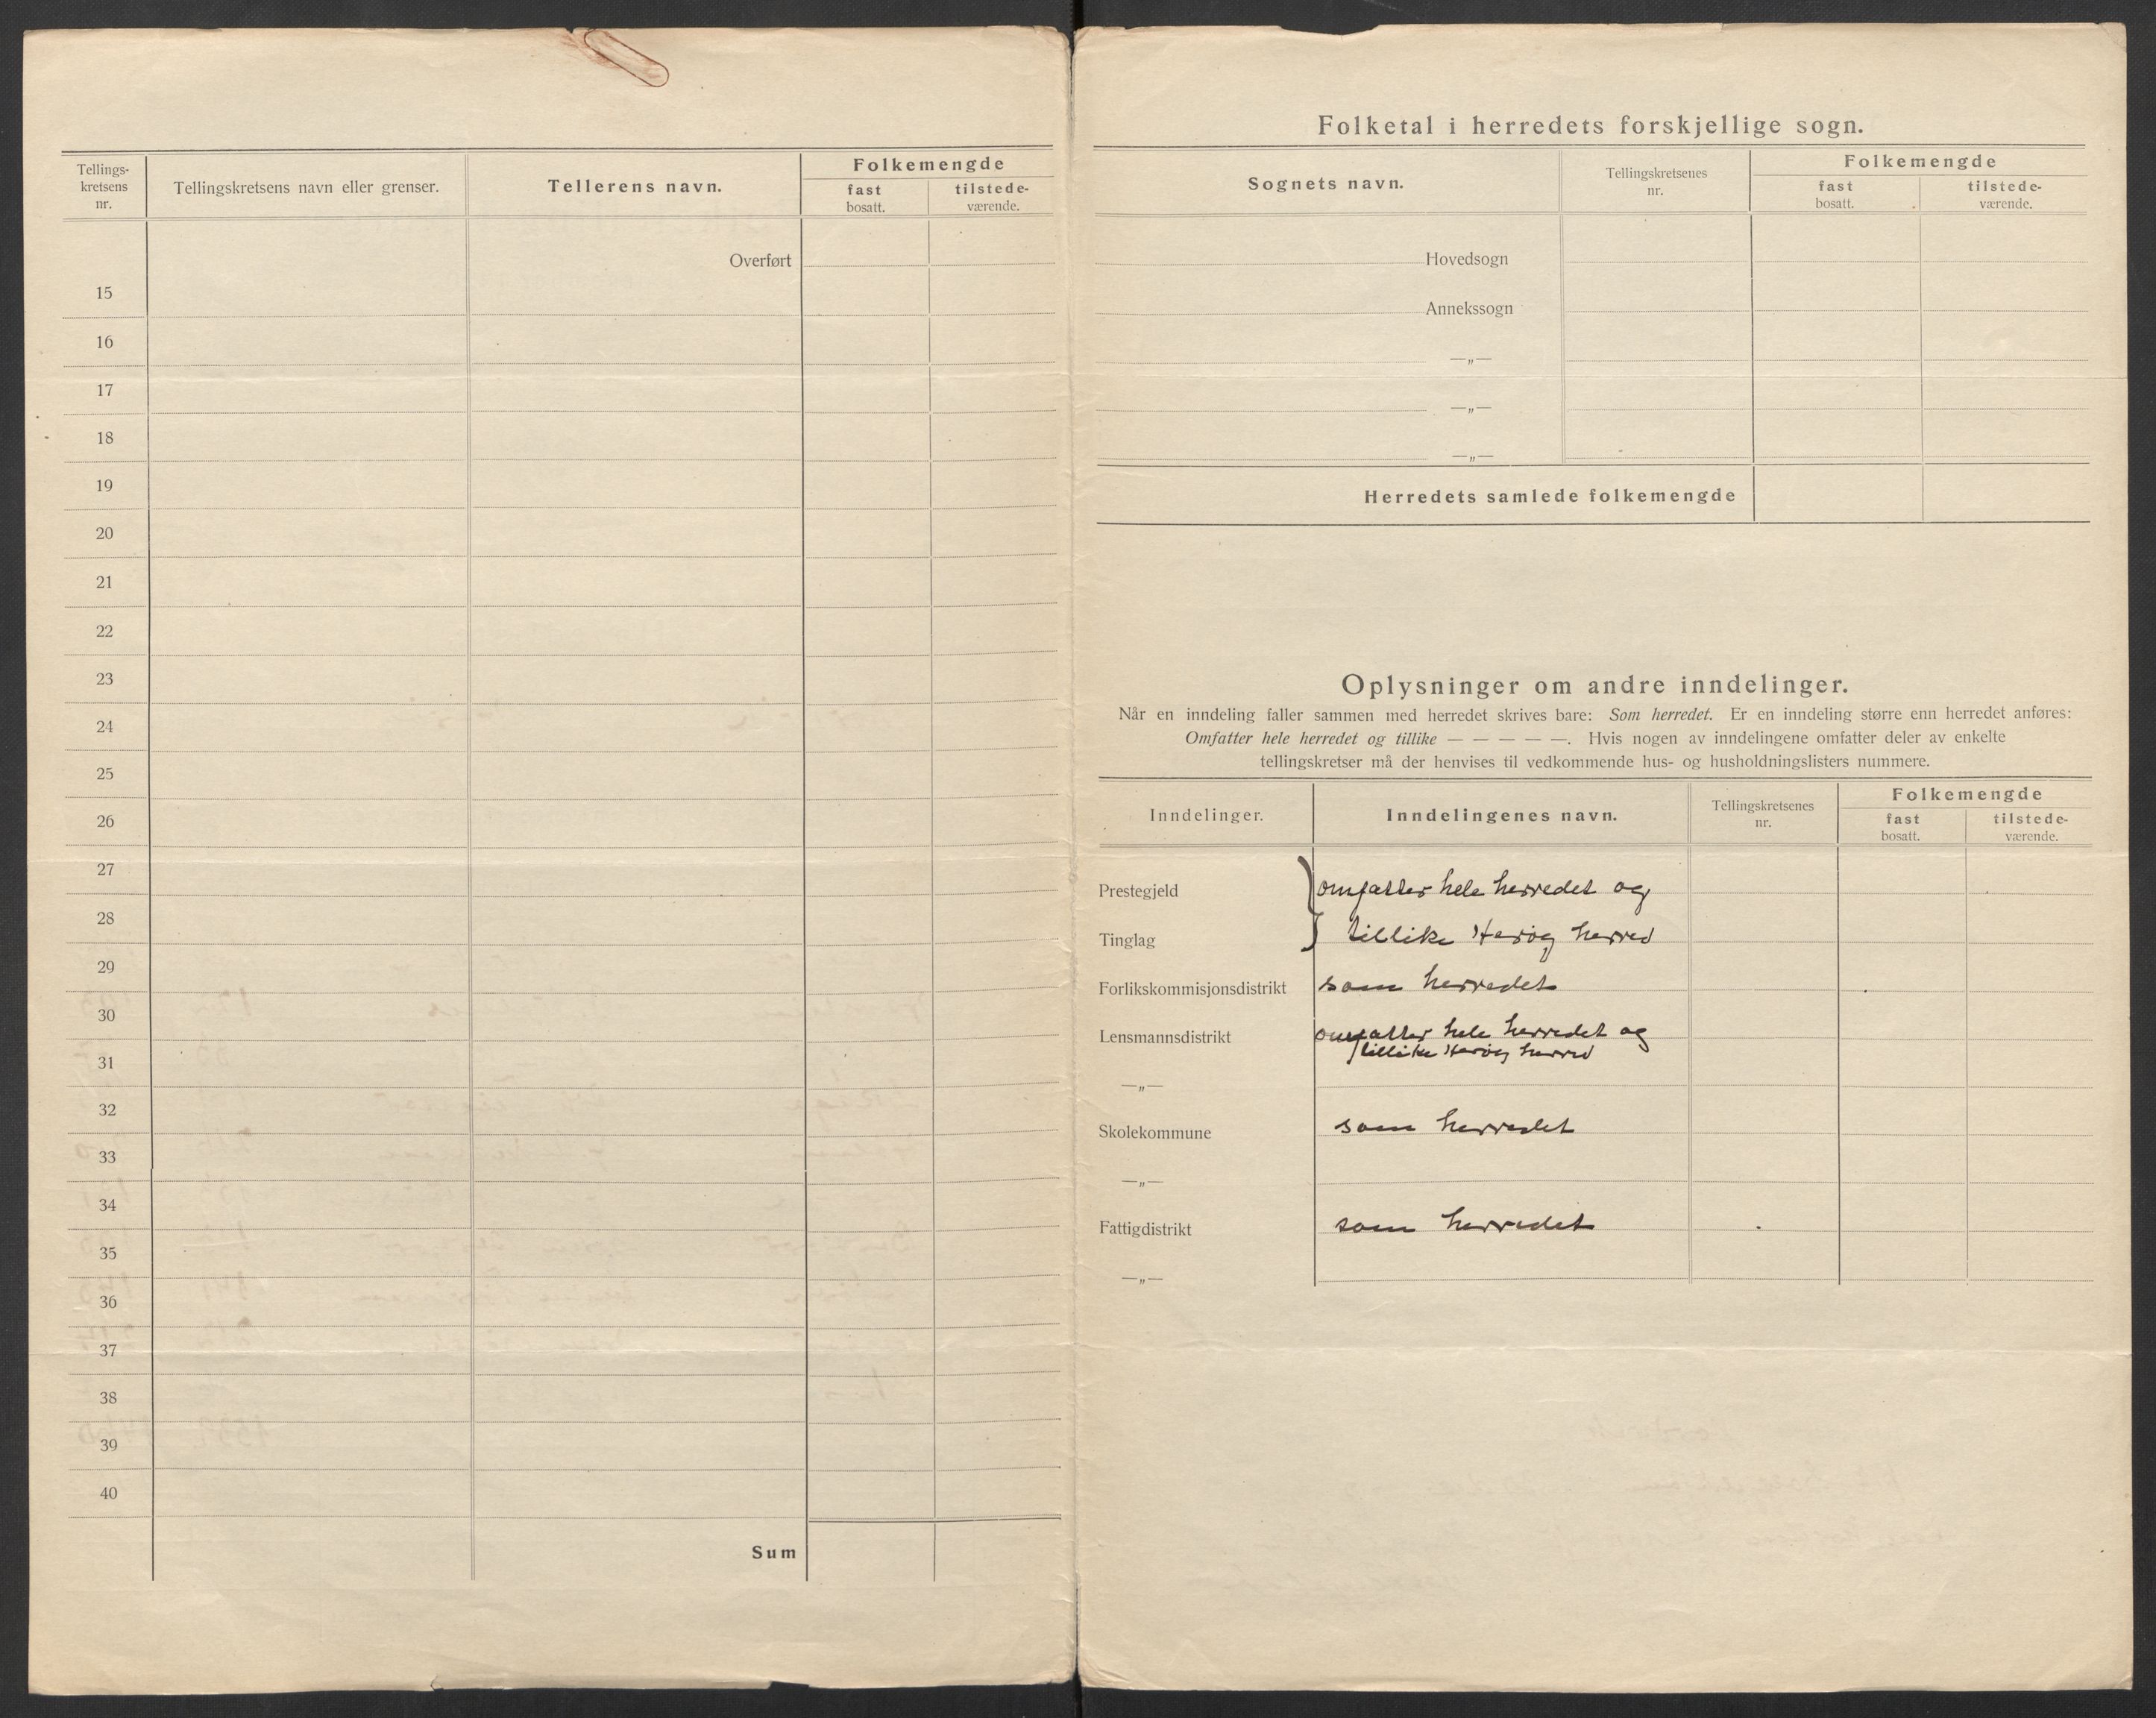 Tellings-
kretsens
nr.
Tellingskretsens navn eller grenser.
Tellerens navn.
Folkemengde
fast
bosatt.
tilstede-
værende.
Overført
15
16
17
18
19
20
21
22
23
24
25
26
27
28
29
30
31
32
33
34
35
36
37
38
39
40
Sum
Folketal i herredets forskjellige sogn.
Sognets navn.
Tellingskretsenes
nr.
Folkemengde
fast
bosatt.
tilstede-
værende.
Hovedsogn
Annekssogn
—„—
—„—
—„—
Herredets samlede folkemengde
Oplysninger om andre inndelinger.
Når en inndeling faller sammen med herredet skrives bare: Som herredet. Er en inndeling større enn herredet anføres:
Omfatter hele herredet og tillike — — — — —. Hvis nogen av inndelingene omfatter deler av enkelte
tellingskretser må der henvises til vedkommende hus- og husholdningslisters nummere.
Inndelinger.
Inndelingenes navn.
Tellingskretsenes
nr.
Folkemengde
fast
bosatt.
tilstede-
værende.
Prestegjeld omfatter hele herredet og
Tinglag tillike Herøy herred
Forlikskommisjonsdistrikt som herredet
Lensmannsdistrikt omfatter hele herredet og
tillike Herøy herred
—„—
Skolekommune som herredet
—„—
Fattigdistrikt som herredet
—„—